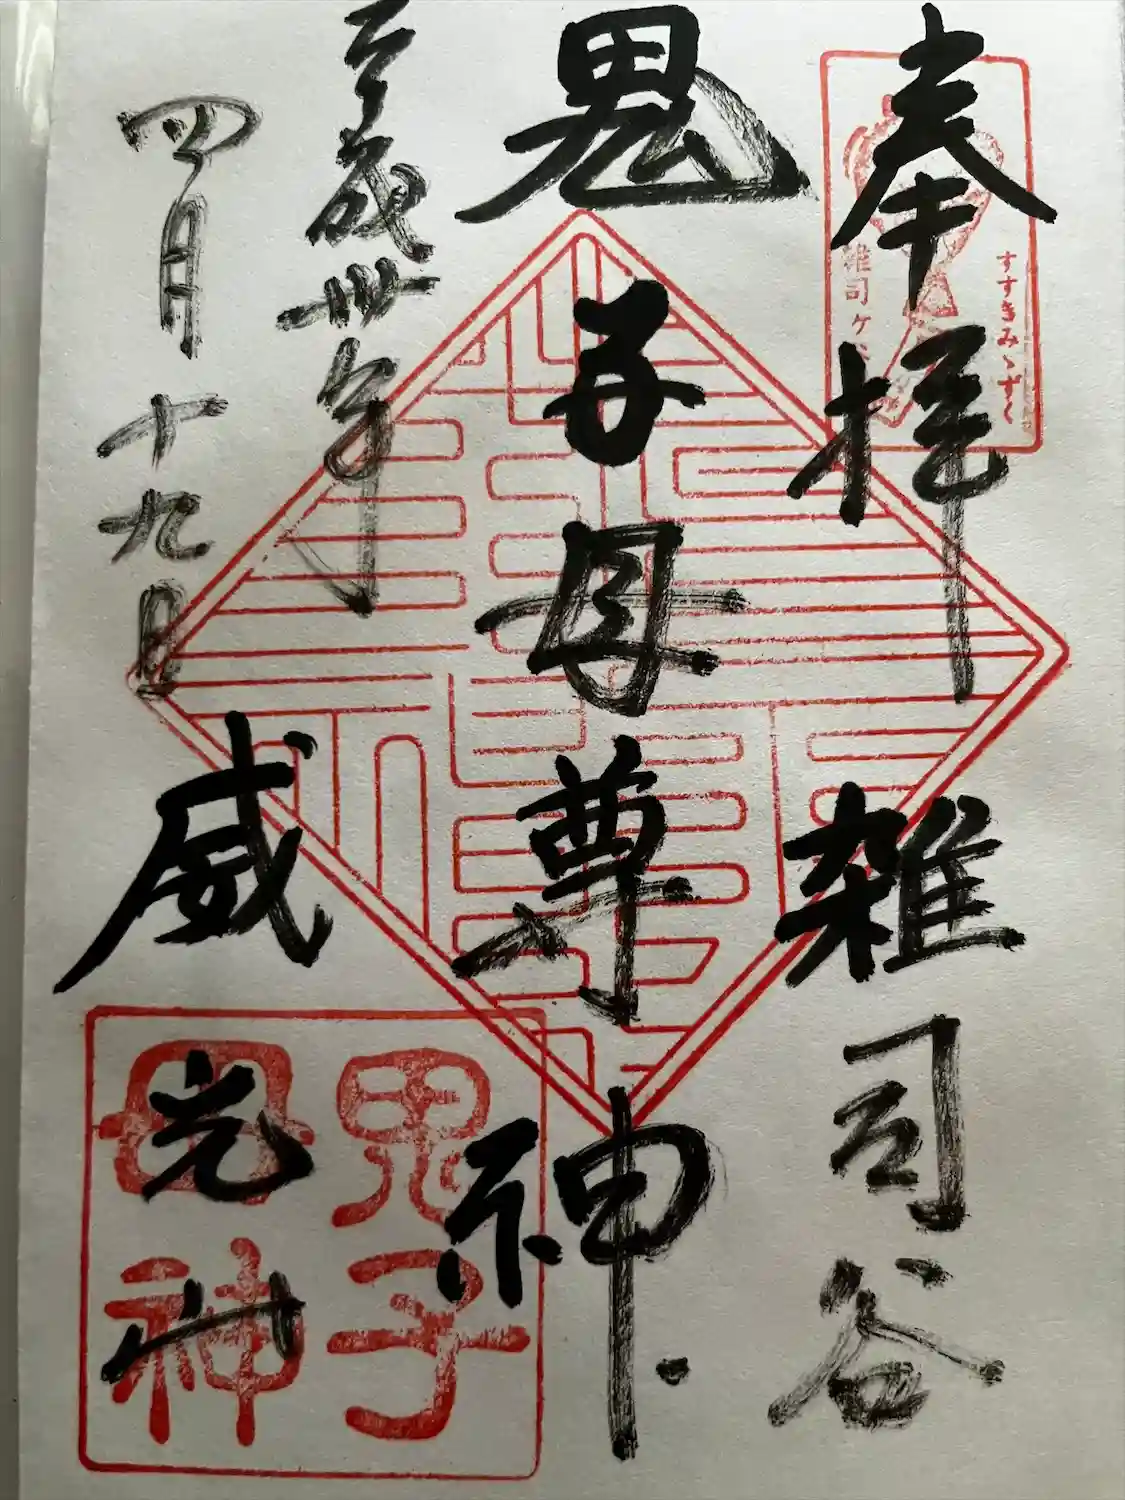 奉拝 雑司谷
すすきみゝずく
雑司ヶ谷
鬼子母尊神
平成卅年
四月十九日
威光山
鬼子
母神